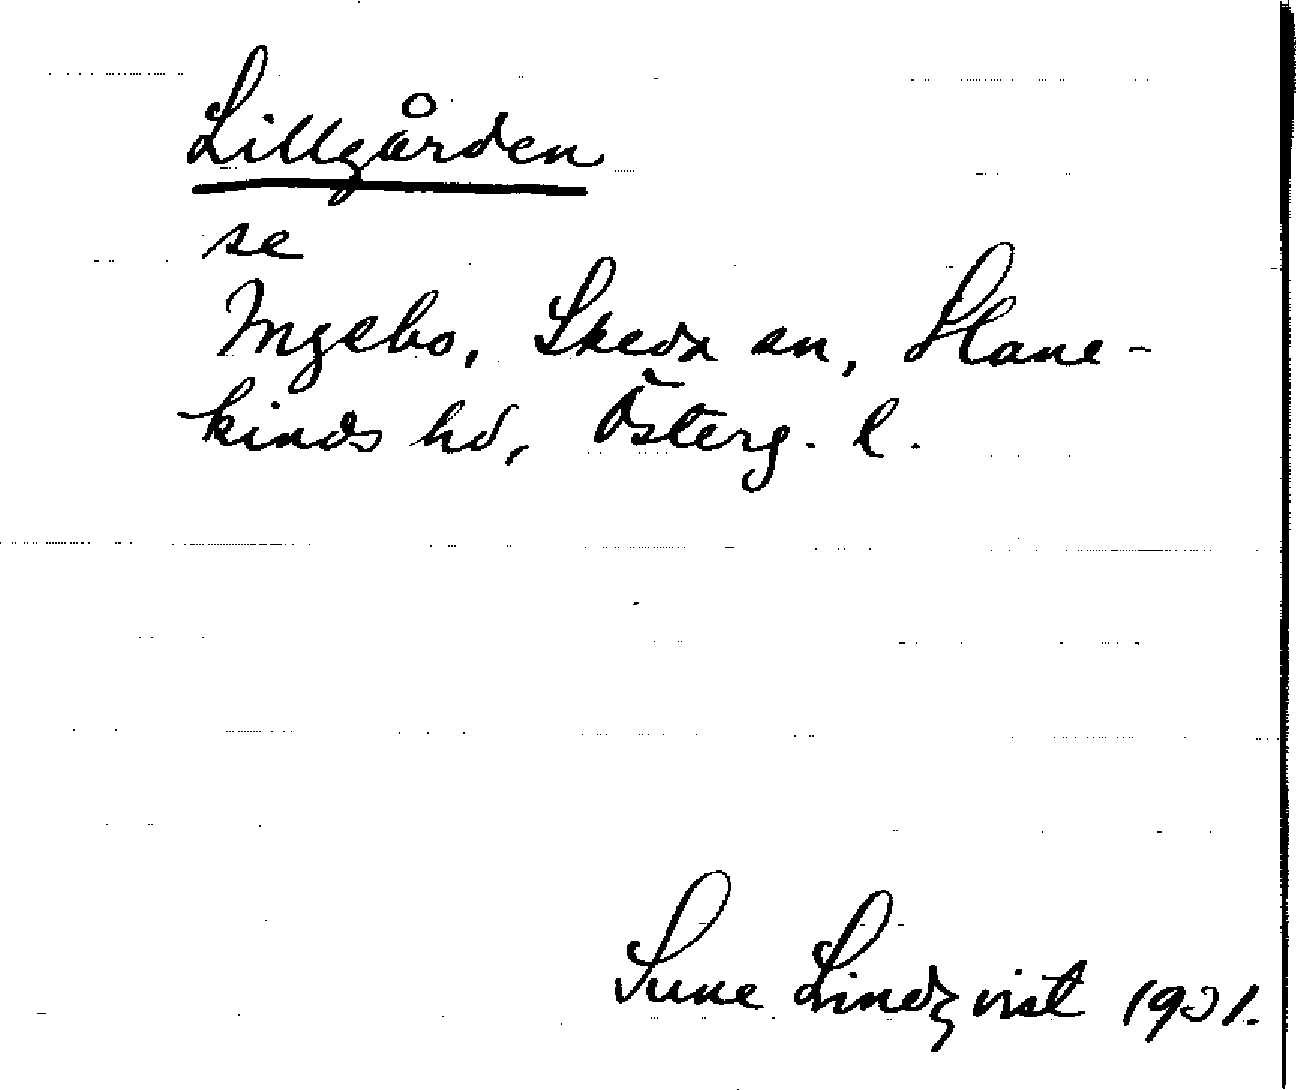 Lillgården
se
Ingebo, Skeda sn, Hane-
kinds hd, Österg. l.
Sune Lindqvist